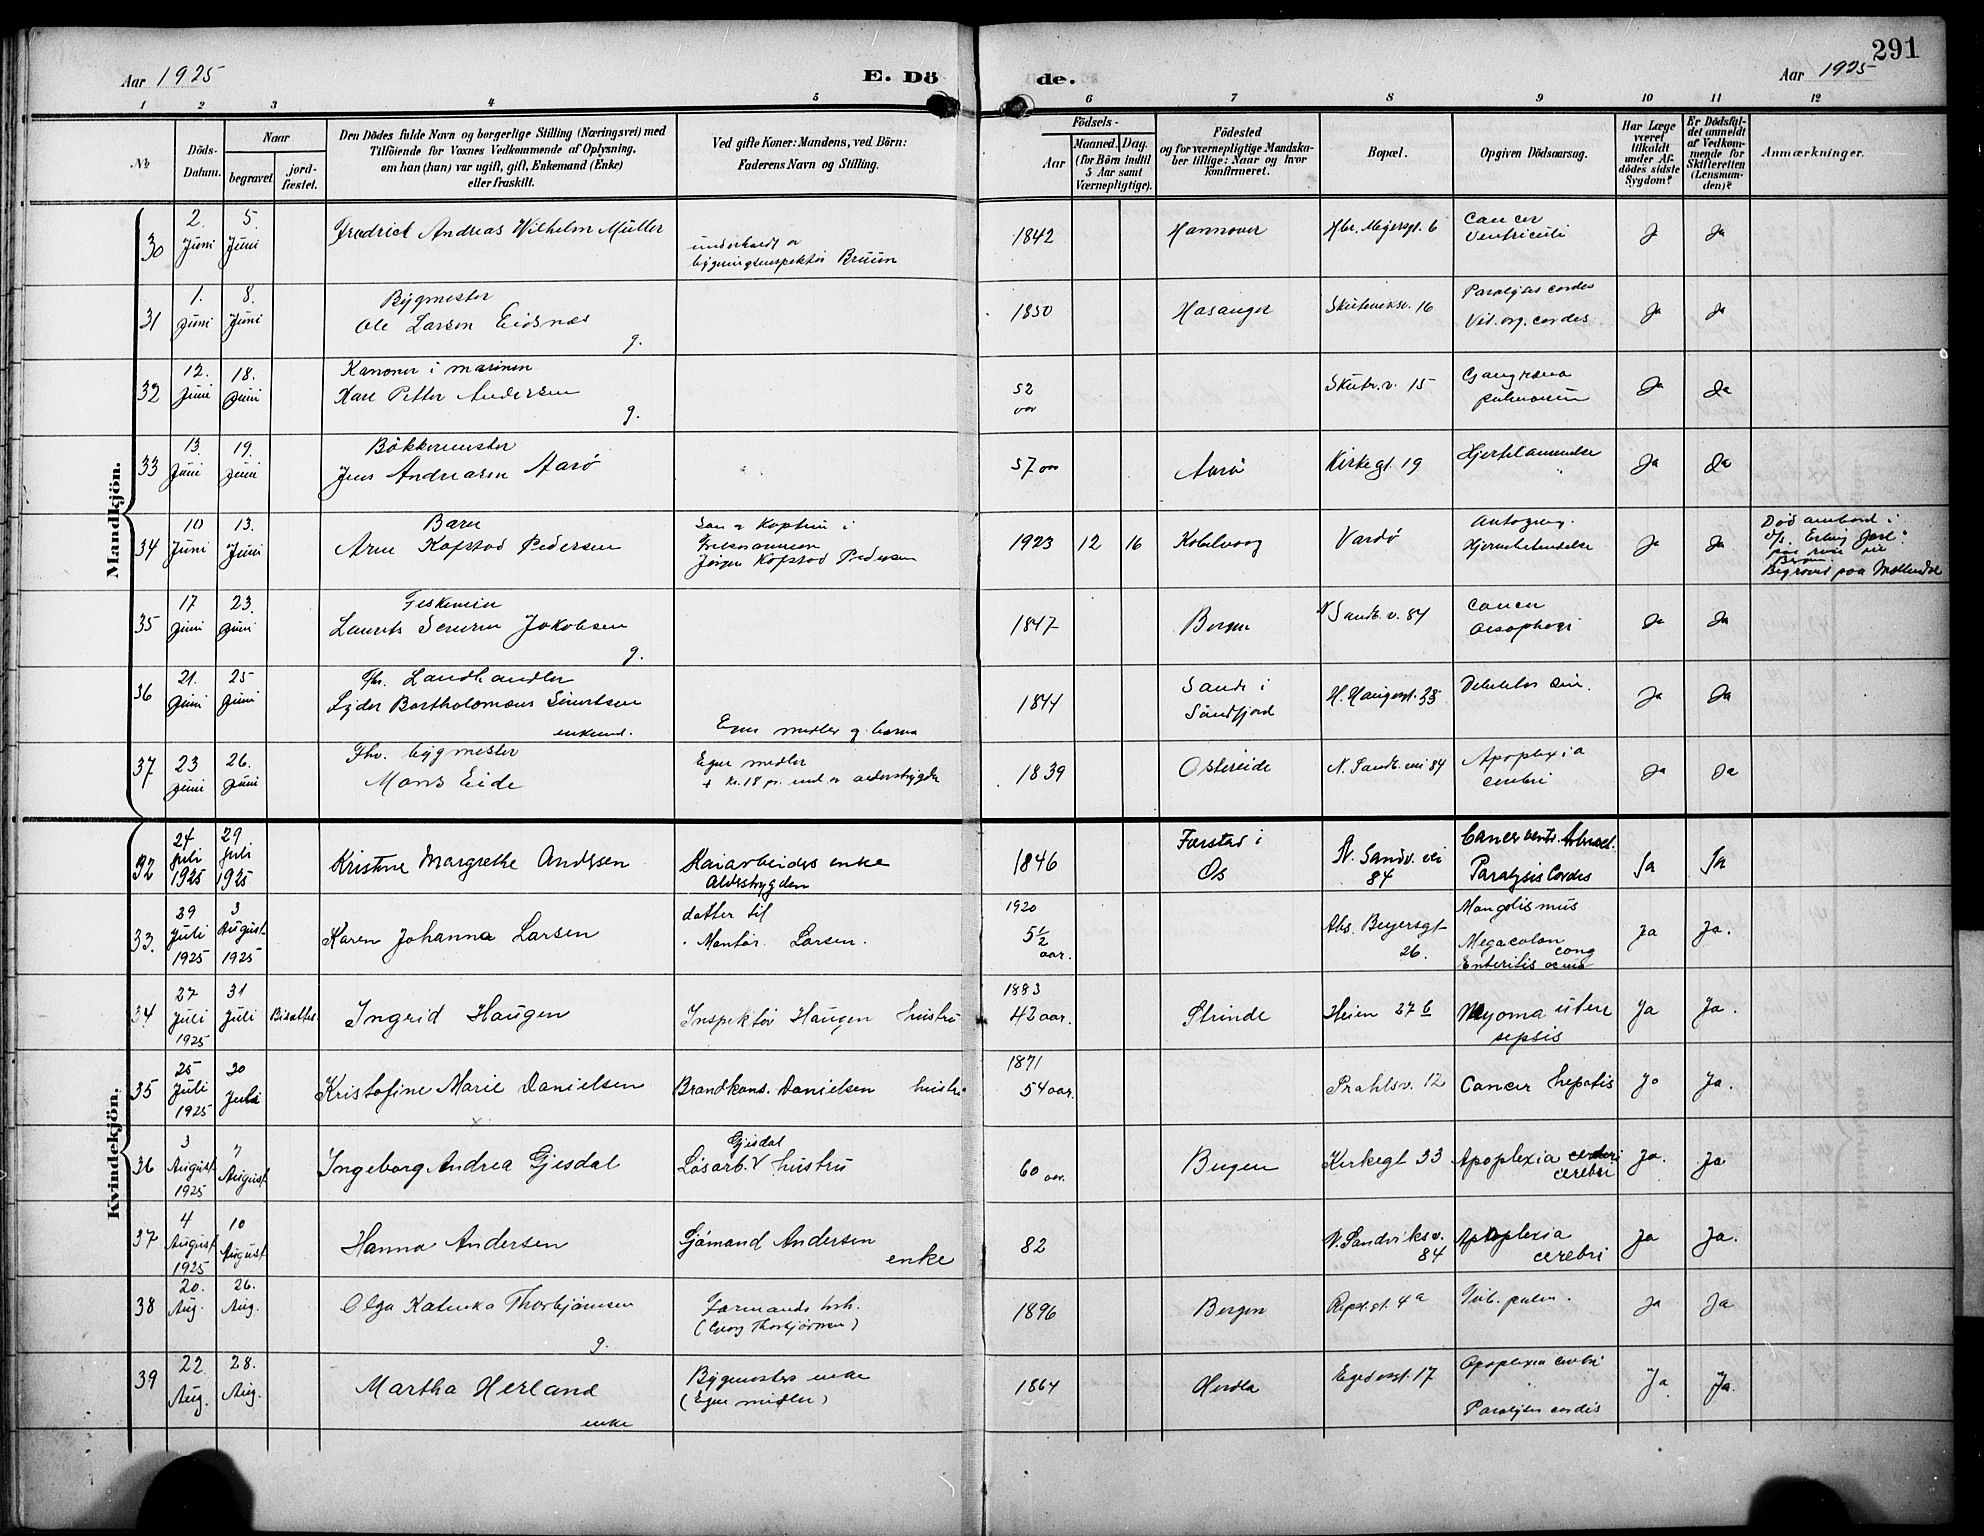 291
Aar 1925
E. Dö
de.
Aar 1925
1 2 3 4 5 6 7 8 9 10 11 12
No
Döds-
Datum.
Naar
begravet.
jord-
fæstet.
Den Dödes fulde Navn og borgerlige Stilling (Næringsvei) med
Tilföiende for Voxnes Vedkommende af Oplysning,
om han (hun) var ugift, gift, Enkemand (Enke)
eller fraskilt.
Ved gifte Koner: Mandens, ved Börn:
Faderens Navn og Stilling.
Födsels-
Aar
Maaned. Dag.
(for Börn indtil
5 Aar samt
Værnepligtige).
Födested
og for værnepligtige Mandska-
ber tillige: Naar og hvor
konfirmeret.
Bopæl.
Opgiven Dödsaarsag.
Har Læge
været
tilkaldt
under Af-
dödes sidste
Sygdom?
Er Dödsfal-
det anmeldt
af Vedkom-
mende for
Skifteretten
(Lensman-
den)?
Anmærkninger.
Mandkjön.
30 2. Juni 5. Juni Fredrick Andreas Wilhelm Müller
Bruun 1842 Hannover 6 Cancer
Ventriculi Ja Ja
31 1. Juni 8. Juni Bygmester
Ole Larsen Eidsnæs
g. 1850 16 Paralysis cordis
Vit. org. cordis. Ja Ja
32 12. Juni 18. Juni Kanoner i marinen
Karl Petter Andersen
g. 52
aar Skutv. v. 15 Gangræna
pulmonum Ja Ja
33 13. Juni 19. Juni Bökkermester
Jens Andreasen Aarö 57 aar Aarö Kirkegt. 19 Hjertelammelse Ja Ja
34 10 Juni 13. Juni Barn
Arne Kofstad Pedersen Jörgen Kofstad Pedersen 1923 12 16 Vardö
Hjernebetændelse Ja Ja Död ombord i
d/s. Erling Jarl
Begravet paa Möllendal
35 17 Juni 23. Juni
Laurits Severin Jakobsen
g. 1847 Bergen N Sandv. v. 84 Cancer
oesophagi Ja Ja
36 21. Juni 25 Juni Fhv. Landhandler
Lyder Bartholomæus Sivertsen
enkem. Egne midler og barna 1844 Sande i
Söndfjord H. Haugesgt. 33 Ja Ja
37 23 Juni 26. Juni Fhv. bygmester
Mons Eide Egne midler
+ kr. 18 pr. mnd. av alderstrygden 1839 Ostereide N. Sandv. vei 84 Apoplexia
cerebri Ja Ja
Kvindekjön.
32 24 Juli 1925 29 Juli 1925 Kristine Margrethe Andersen Kaiarbeiders enke
Alderstrygden 1846 Færstad i
Os N. Sandv. vei
84 Cancer ventr.
Paralysis Cordis Ja Ja
33. 29 Juli 1925 3 August 1925 Karen Johanna Larsen datter til
Montör Larsen. 1920
5 1/2
aar. Abs. Beyersgt
26. Mongolismus
Megacolon cong
Enteritis acuta Ja Ja.
34 27 Juli 1925 31 Juli Bisattes. Ingrid Haugen Inspektör Haugen hustru 1883
42 aar. Strinde Heien 27 b Myoma uteri
sepsis Ja Ja.
35 25 Juli 1925 30 Juli Kristofine Marie Danielsen Brandkons. Danielsen hustru 1871
54 aar. Prahlsv. 12 Cancer hepatis Ja Ja.
36 3 August 1925 7 August Ingeborg Andrea Gjesdal Gjesdal
Lösarb. V hustru 60 aar. Bergen Kirkegt 33 Apoplexia cerebri
cerebri Ja. Ja
37 4 August 1925 10 August Hanna Andersen Sjömand Andersen
enke 82 N. Sandviksv.
84 Apoplexia
cerebri Ja Ja.
38 20. Aug. 26. Aug. Olga Katinka Thorbjörnsen
g. Formands hstr.
(Georg Thorbjörnsen) 1896 Bergen Repsl. gt. 4 a Tub. pulm. Ja Ja
39 22. Aug. 28. Aug. Martha Herland
enke Bygmesters enke
(Egne midler) 1864 Herdla Egedesgt. 17 Apoplexia cerebri
Paralysis cordis Ja Ja.